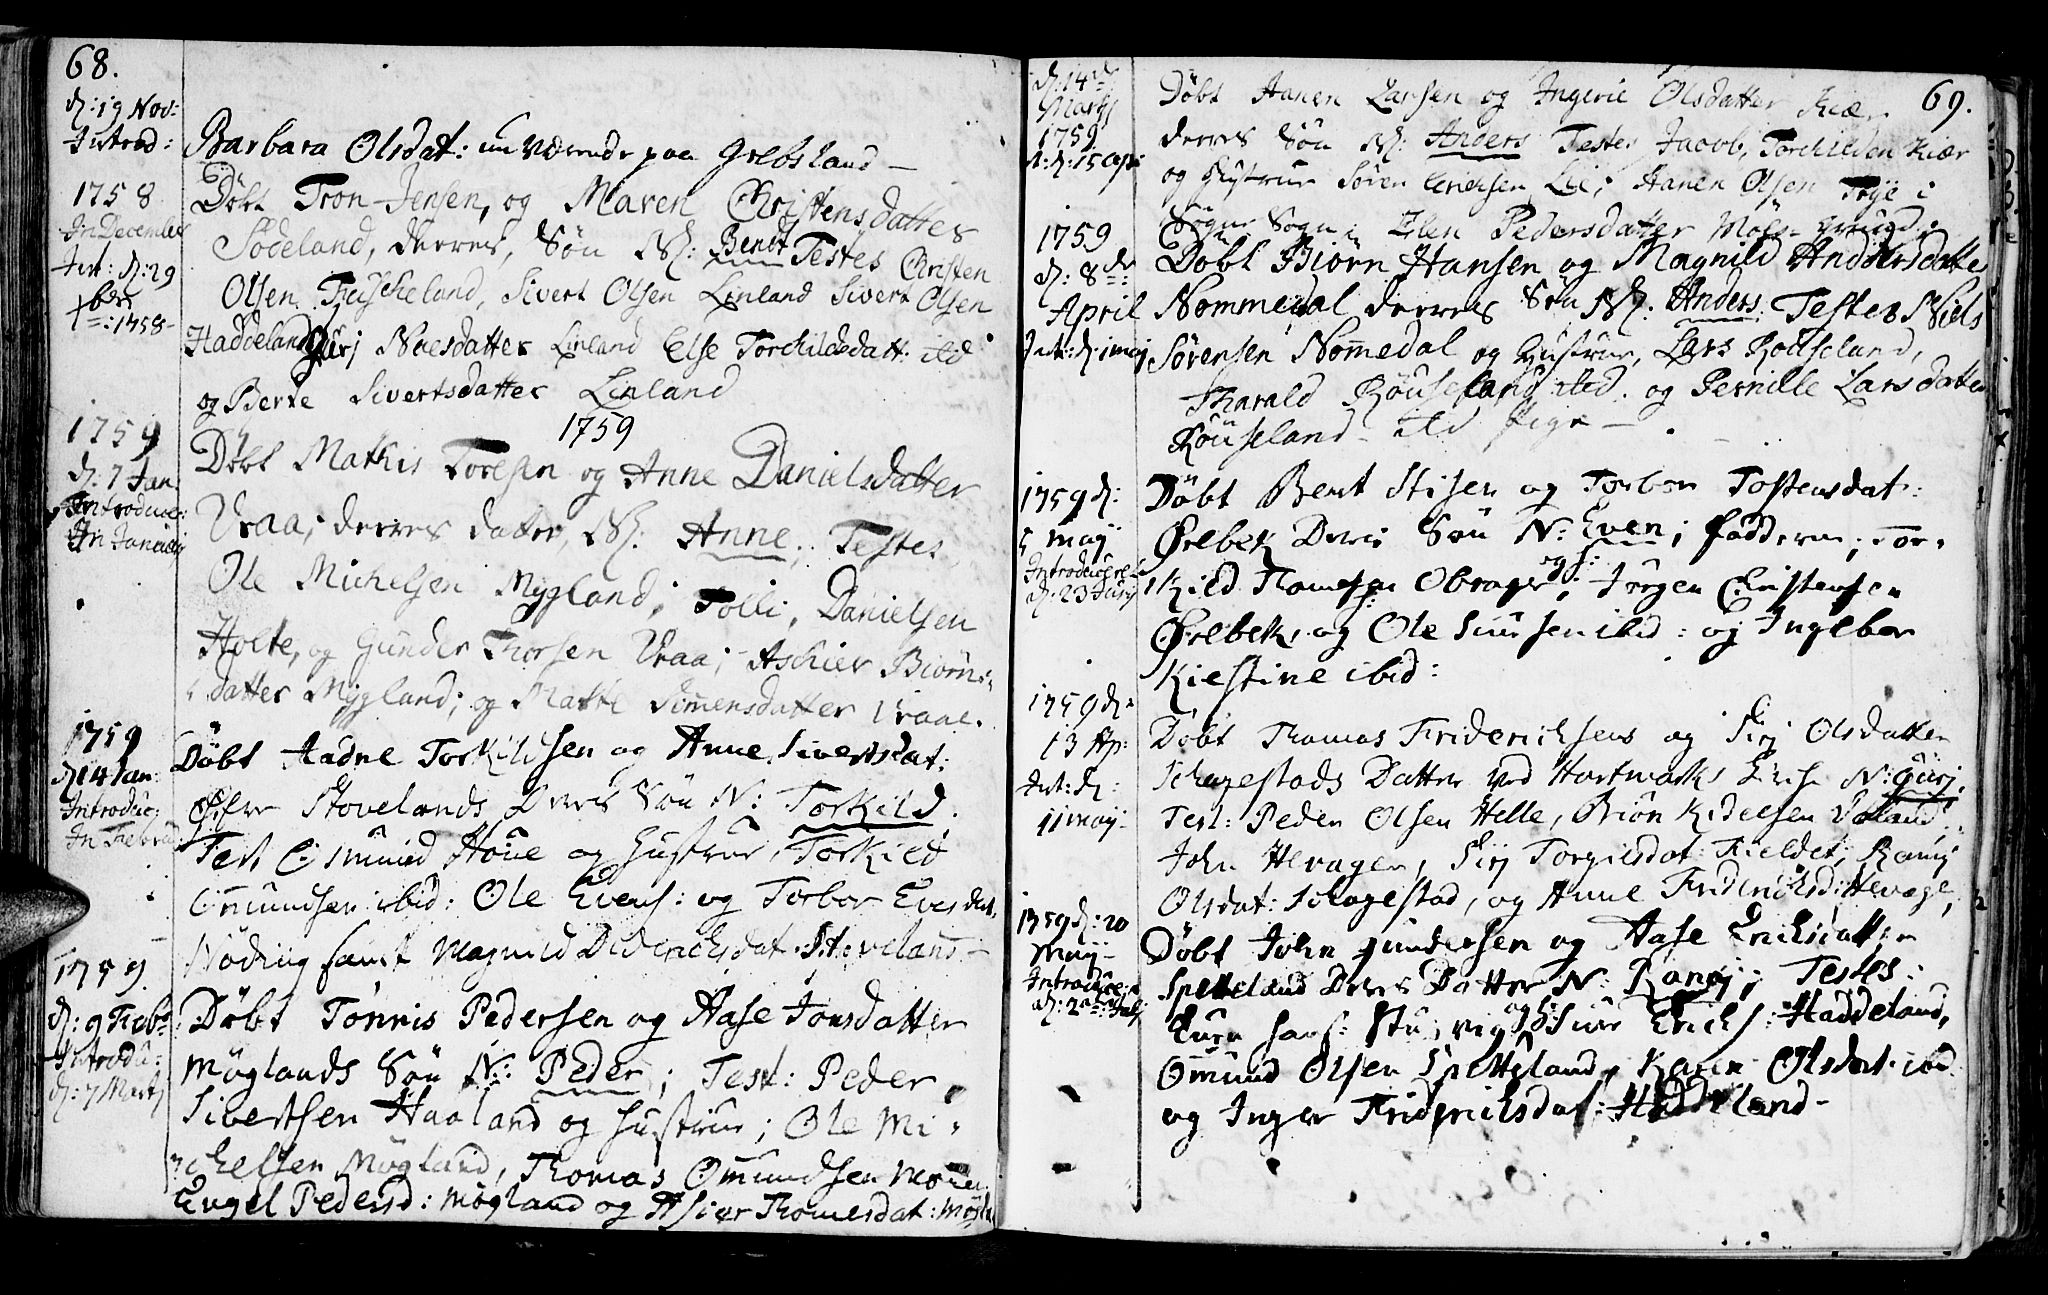 68.
d: 19 Nov:
Introd:
Barbara Olsdat: nu værende paa Grebsland –
1758
In December
Int: d: 29
Xbr: 1758 –
Døbt Tron Jensen, og Maren Christensdatter
Sødeland, derres Søn N: Bendt Testes Christen
Olsen Fuscheland, Sivert Olsen Linland Sivert Olsen
Haddeland, Siri Noesdatter Linland Else Torchildsdatt: ibd
og Berte Sivertsdatter Linland
1759
1759
d: 7 Jan.
Introduc:
In Januarij
Døbt Mathis Toresen og Anne Danielsdatter
Vraa; derres datter, N: Anne; Testes,
Ole Michelsen Mygland; Tolli, Danielsen
Holte, og Gunder Thorsen Vraa; Aschier Biørns-
datter Mygland; og Marte Simensdatter Vraae.
1759
d: 14 Jan:
Introduc:
In Februar
Døbt Aadne Torkildsen og Anne Sivertsdat:
Øfre Stovelands Deres Søn N: Torkild.
Test Osmund Houe og Hustrue, Torkild
Omundsen ibid: Ole Evens: og Torbor Evesdat,
Nøding samt Magnild Didrichsdat: Stoveland –
1759.
d: 9 Febr:
Introdu:
d: 7 Martj
Døbt Tønnis Pedersen og Aase Jonsdatter
Møglands Søn N: Peder; Test: Peder
Sivertsen Haaland og Hustrue; Ole Mi-
chelsen Møgland, Thomas Omundsen Moen
Engel Pedersd: Møgland og Asier Thomesdat: Møgla
69.
d: 14 de
Martj
1759
I: d: 15 Apr:
Døbt Hanen Larsen og Ingerie Olsdatter Kiær
derres Søn N: Anders Testes Jacob Torchildsen Kiær
og Hustrue Søren Erichsen Lie; Hanen Olsen Frøje i
Søgne Sogn; Elen Pedersdatter Møls-
1759
d: 8 de
April
Int: d: 1 Maj
Døbt Biørn Hansen og Magnild Andersdatter
Nommedal derres Søn N: Anders, Testes Niels
Sørensen Nommedal og Hustrue, Lars Røuseland,
Tharald Røuseland ibid. og Pernille Larsdatter
Røuseland – ibd pige –
1759 d:
5 Maij
Introducered
d: 23 Junij
Døbt Bent Stisen og Torbor Tostensdat:
Ørebek Deris Søn N: Even; Faddere; Tor-
Kild Thomesen Obrager og H:; Jørgen Christensen
Ørebek, og Ole Siursen ibid: og Ingebor
Kiestine ibid:
1759 d:
13 Ap:
Int: d:
11 Maij
Døbt Thomas Friderichsens og Siri Olsdatter
Schagestads Datter ved Hartmarks Kirke N: Guri,
Test: Peder Olsen Helle, Briøn Kidelsen
John Hevager, Siri Torgiersdat: Fieldet, Rannj
Olsdat: Schagestad, og Anne Friderichsd: Hevage,
1759 d: 20
Maij –
Introduce:
d: 2den: Julj
Døbt John Gundersen og Aase Erichsdatter
Spetteland Deres Datter N: Ranej; Testes:
Even Hans: Stusvig og H: Siur Erichs: Haddeland,
Omund Olsen Spetteland, Karen Olsdat: ibd
og Inger Friderichsdat: Haddeland –